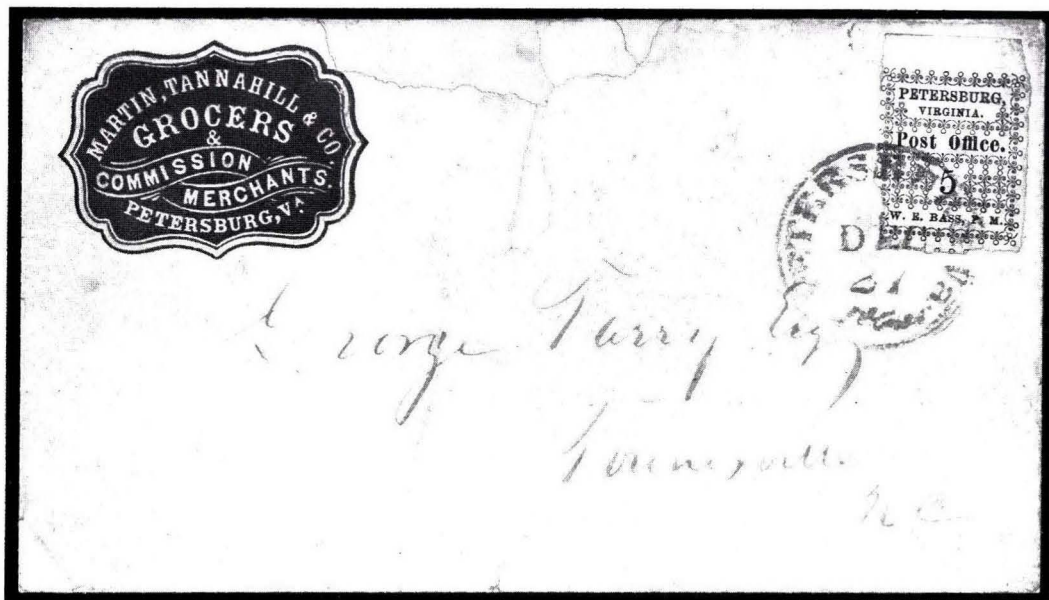 MARTIN, TANNAHILL & CO.
GROCERS
&
COMMISSION
MERCHANTS.
PETERSBURG, VA
PETERSBURG,
VIRGINIA.
Post Office.
5
W. E. BASS, P. M.
DEC
George Tarry Esq
Townesville
N C